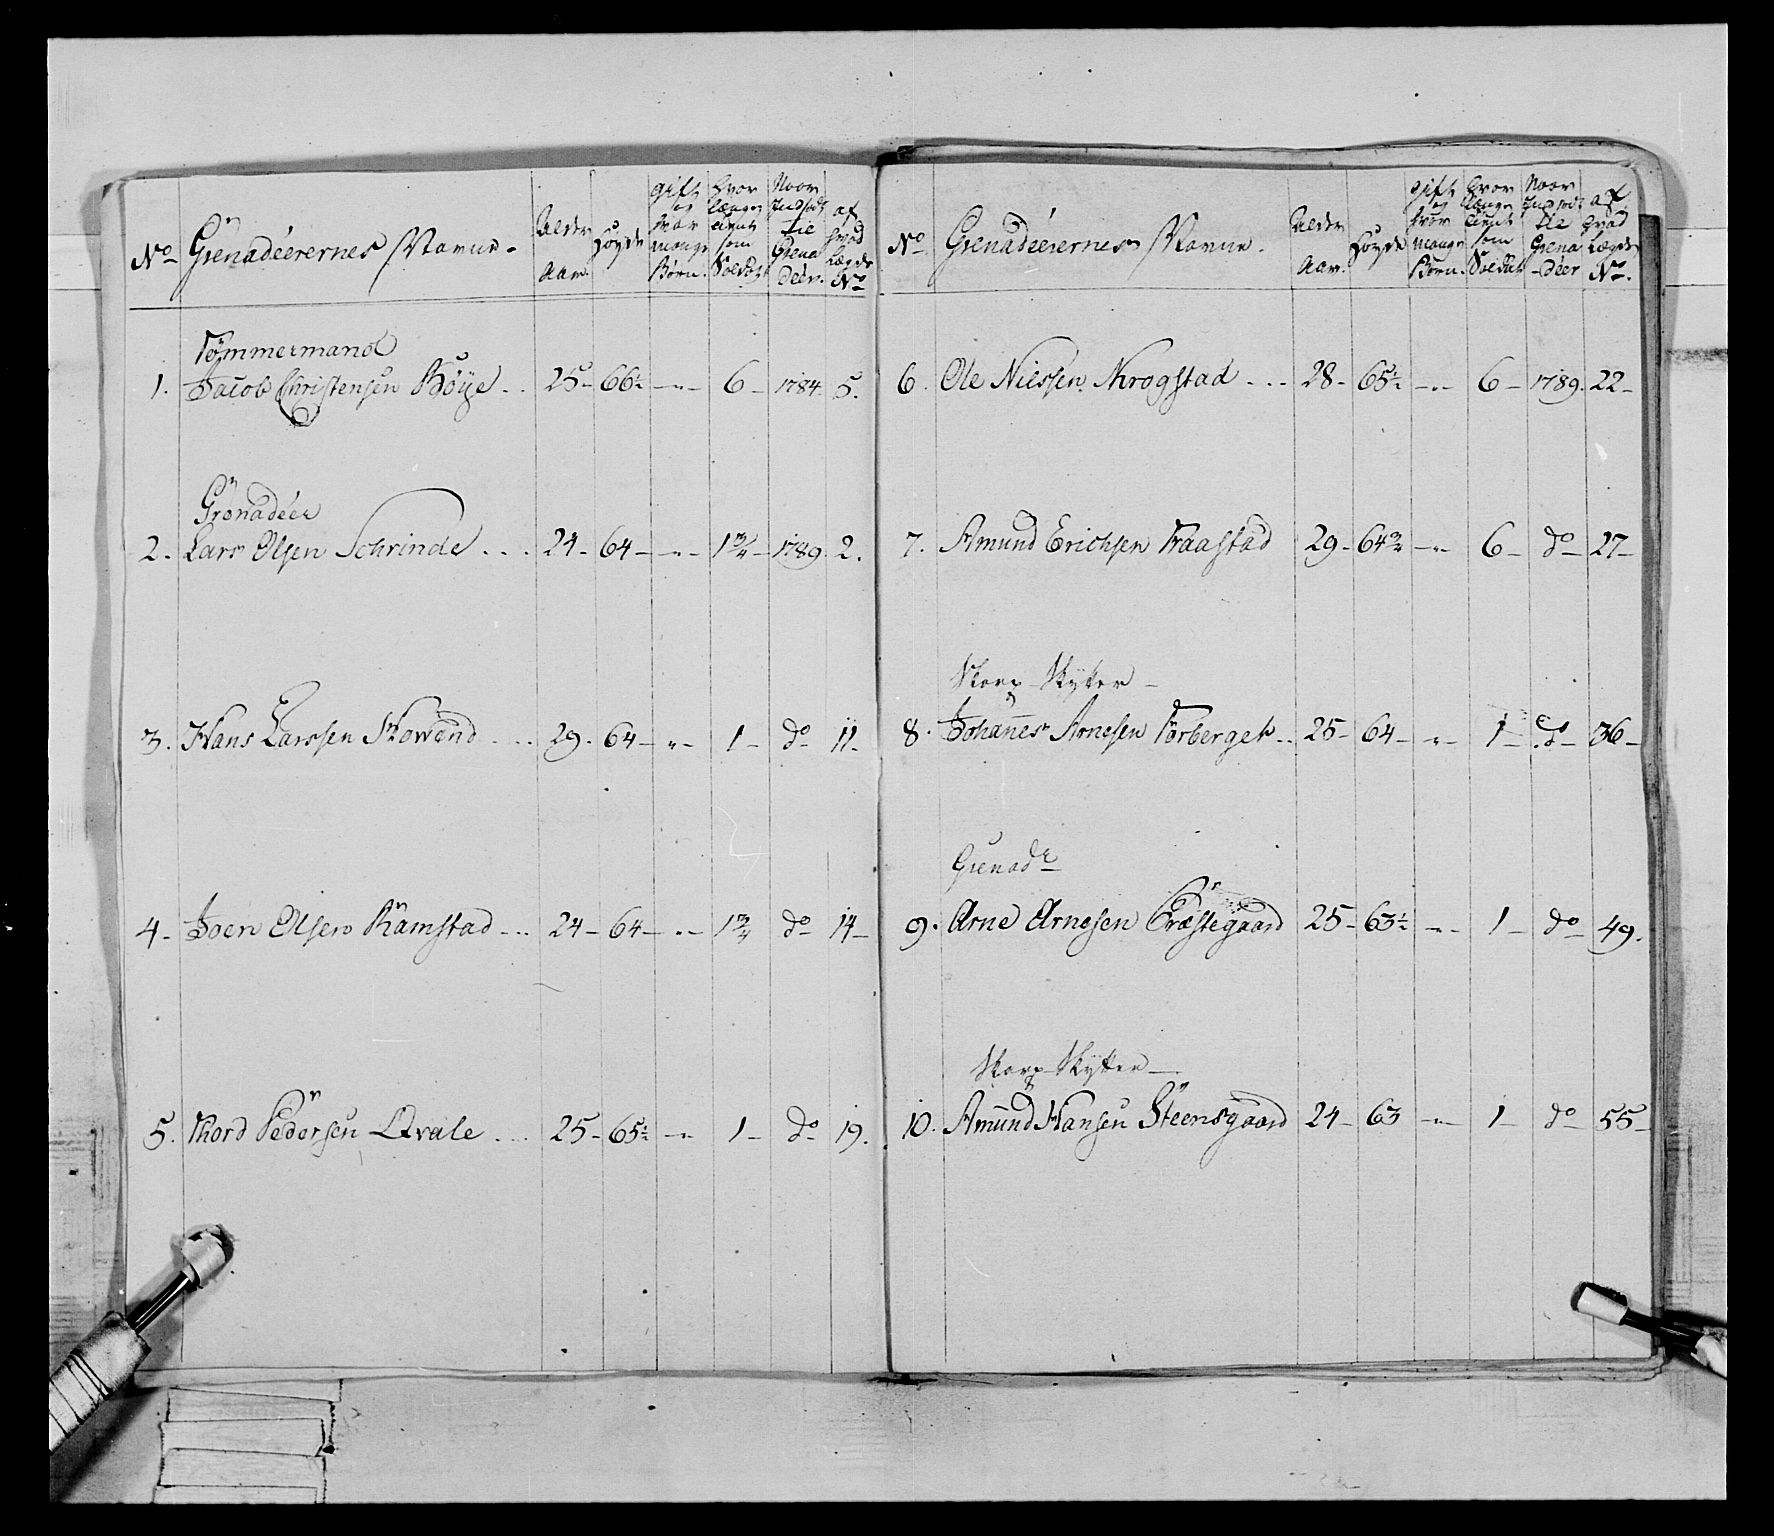 No Grenadéerernes Navne. Alder Aar. Höyde gift og hvor mange Börn. hvor længe tient som Soldat Naar Indsadt til Grenadéer. af hvad Lægds No
Tömmermand
1. Jacob Christensen Böye .. 25 - 66½ - " - 6 - 1784. 5.
Grenadéer
2. Lars Olsen Schrinde ... 24 - 64 - " - 1¾ - 1789. 2.
3. Hans Larssen Skowend ... 29 - 64 - " - 1 - do 11.
4. Joen Olsen Ramstad ... 24 - 64 - " - 1¾ do 14 -
5. Thord Pedersen Qvale ... 25 - 65½ - " - 1 - do 19.
No Grenadéerernes Navne. Alder Aar. Höyde gift og hvor mange Börn. hvor længe tient som Soldat Naar Indsadt til Grenadéer af hvad Lægds No.
6. Ole Nielssen Krogstad ... 28 - 65½ - " - 6 - 1789. 22 -
7. Amund Erichsen Fraastad 29 - 64¾ - " - 6 - do 27 -
Skarp Skytter -
8. Johannes Arnesen Torberget .. 25 - 64 - " - 1 - do 36 -
Grenadr
9. Arne Arnesen Præstegaard 25 - 63½ - " - 1 - do 49.
Skarp Skytter -
10. Amund Hansen Steensgaard 24 - 63 - " - 1 - do 55 -